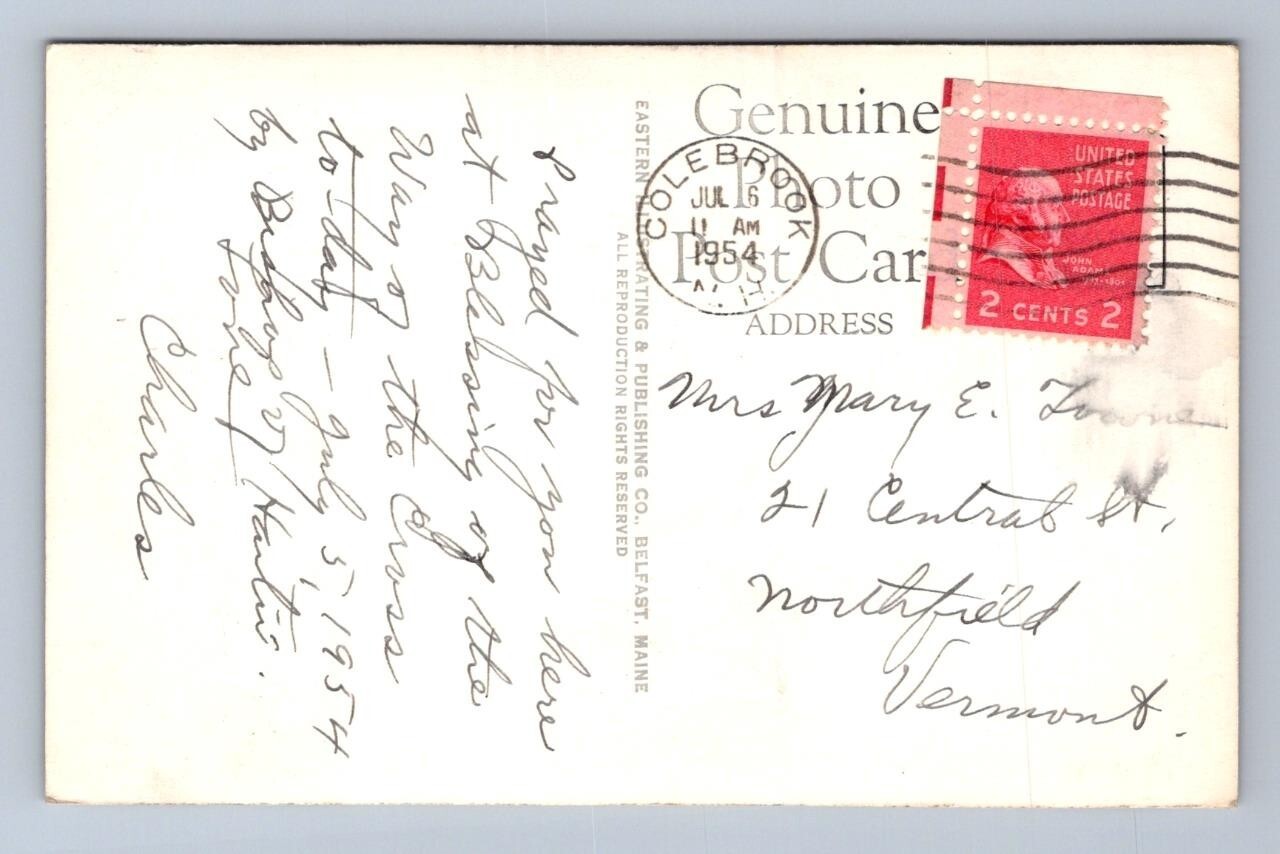 Prayed for you here
at Blessing of the
Way of the Cross
to-day - July 5, 1954
by Bishop
Love,
Charles
EASTERN ILLUSTRATING & PUBLISHING CO., BELFAST, MAINE
ALL REPRODUCTION RIGHTS RESERVED
Genuine
Photo
Post Car
ADDRESS
COLEBROOK
JUL 6
11 AM
1954
N. H.
UNITED
STATES
POSTAGE
JOHN
ADAMS
2 CENTS 2
Mrs Mary E.
21 Central St.
Northfield
Vermont.